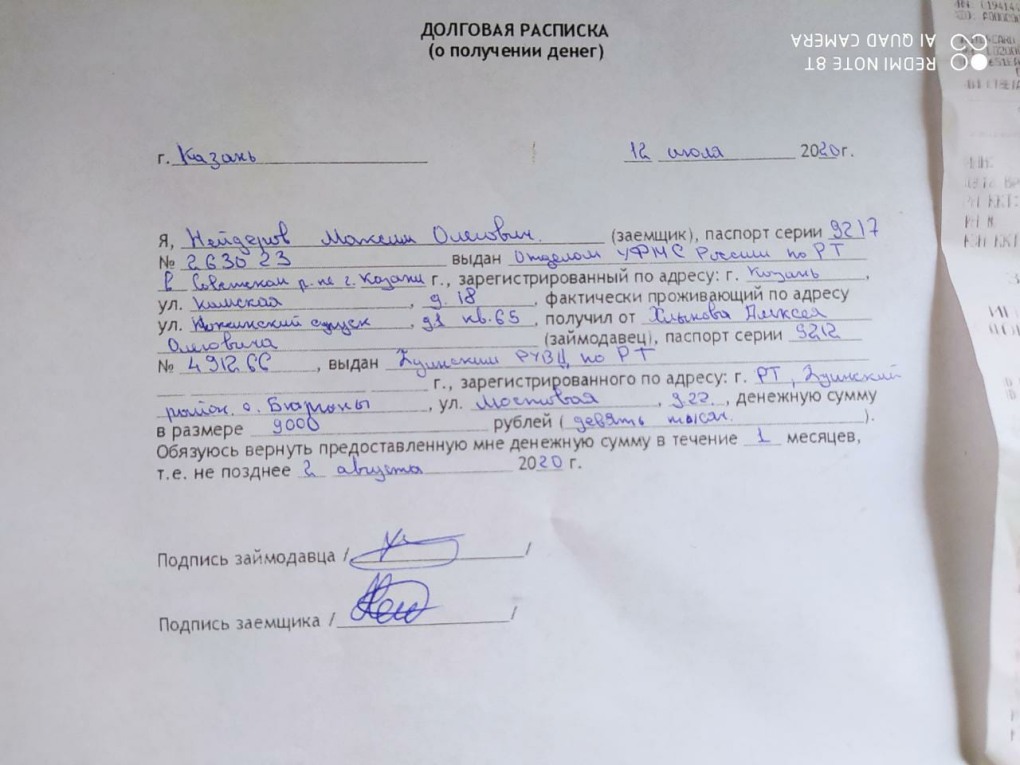 ДОЛГОВАЯ РАСПИСКА
(о получении денег)
REDMI NOTE 8T
AI QUAD CAMERA
г. Казань 12 июля 2020г.
Я, Нейдеров Максим Олегович. (заемщик), паспорт серии 9217
№ 263023 выдан Отделом УФМС России по РТ
в Советском р-не г. Казани г., зарегистрированный по адресу: г. Казань,
ул. Камская, д. 18, фактически проживающий по адресу
ул. спуск, д1 кв.65, получил от Алексея
Олеговича (займодавец), паспорт серии 9212
№ 491266, выдан по РТ
г., зарегистрированного по адресу: г. РТ,
район. с., ул. Мостовая, д.22., денежную сумму
в размере 9000 рублей (девять тысяч.).
Обязуюсь вернуть предоставленную мне денежную сумму в течение 1 месяцев,
т.е. не позднее 2 августа 2020 г.
Подпись займодавца / /
Подпись заемщика / /